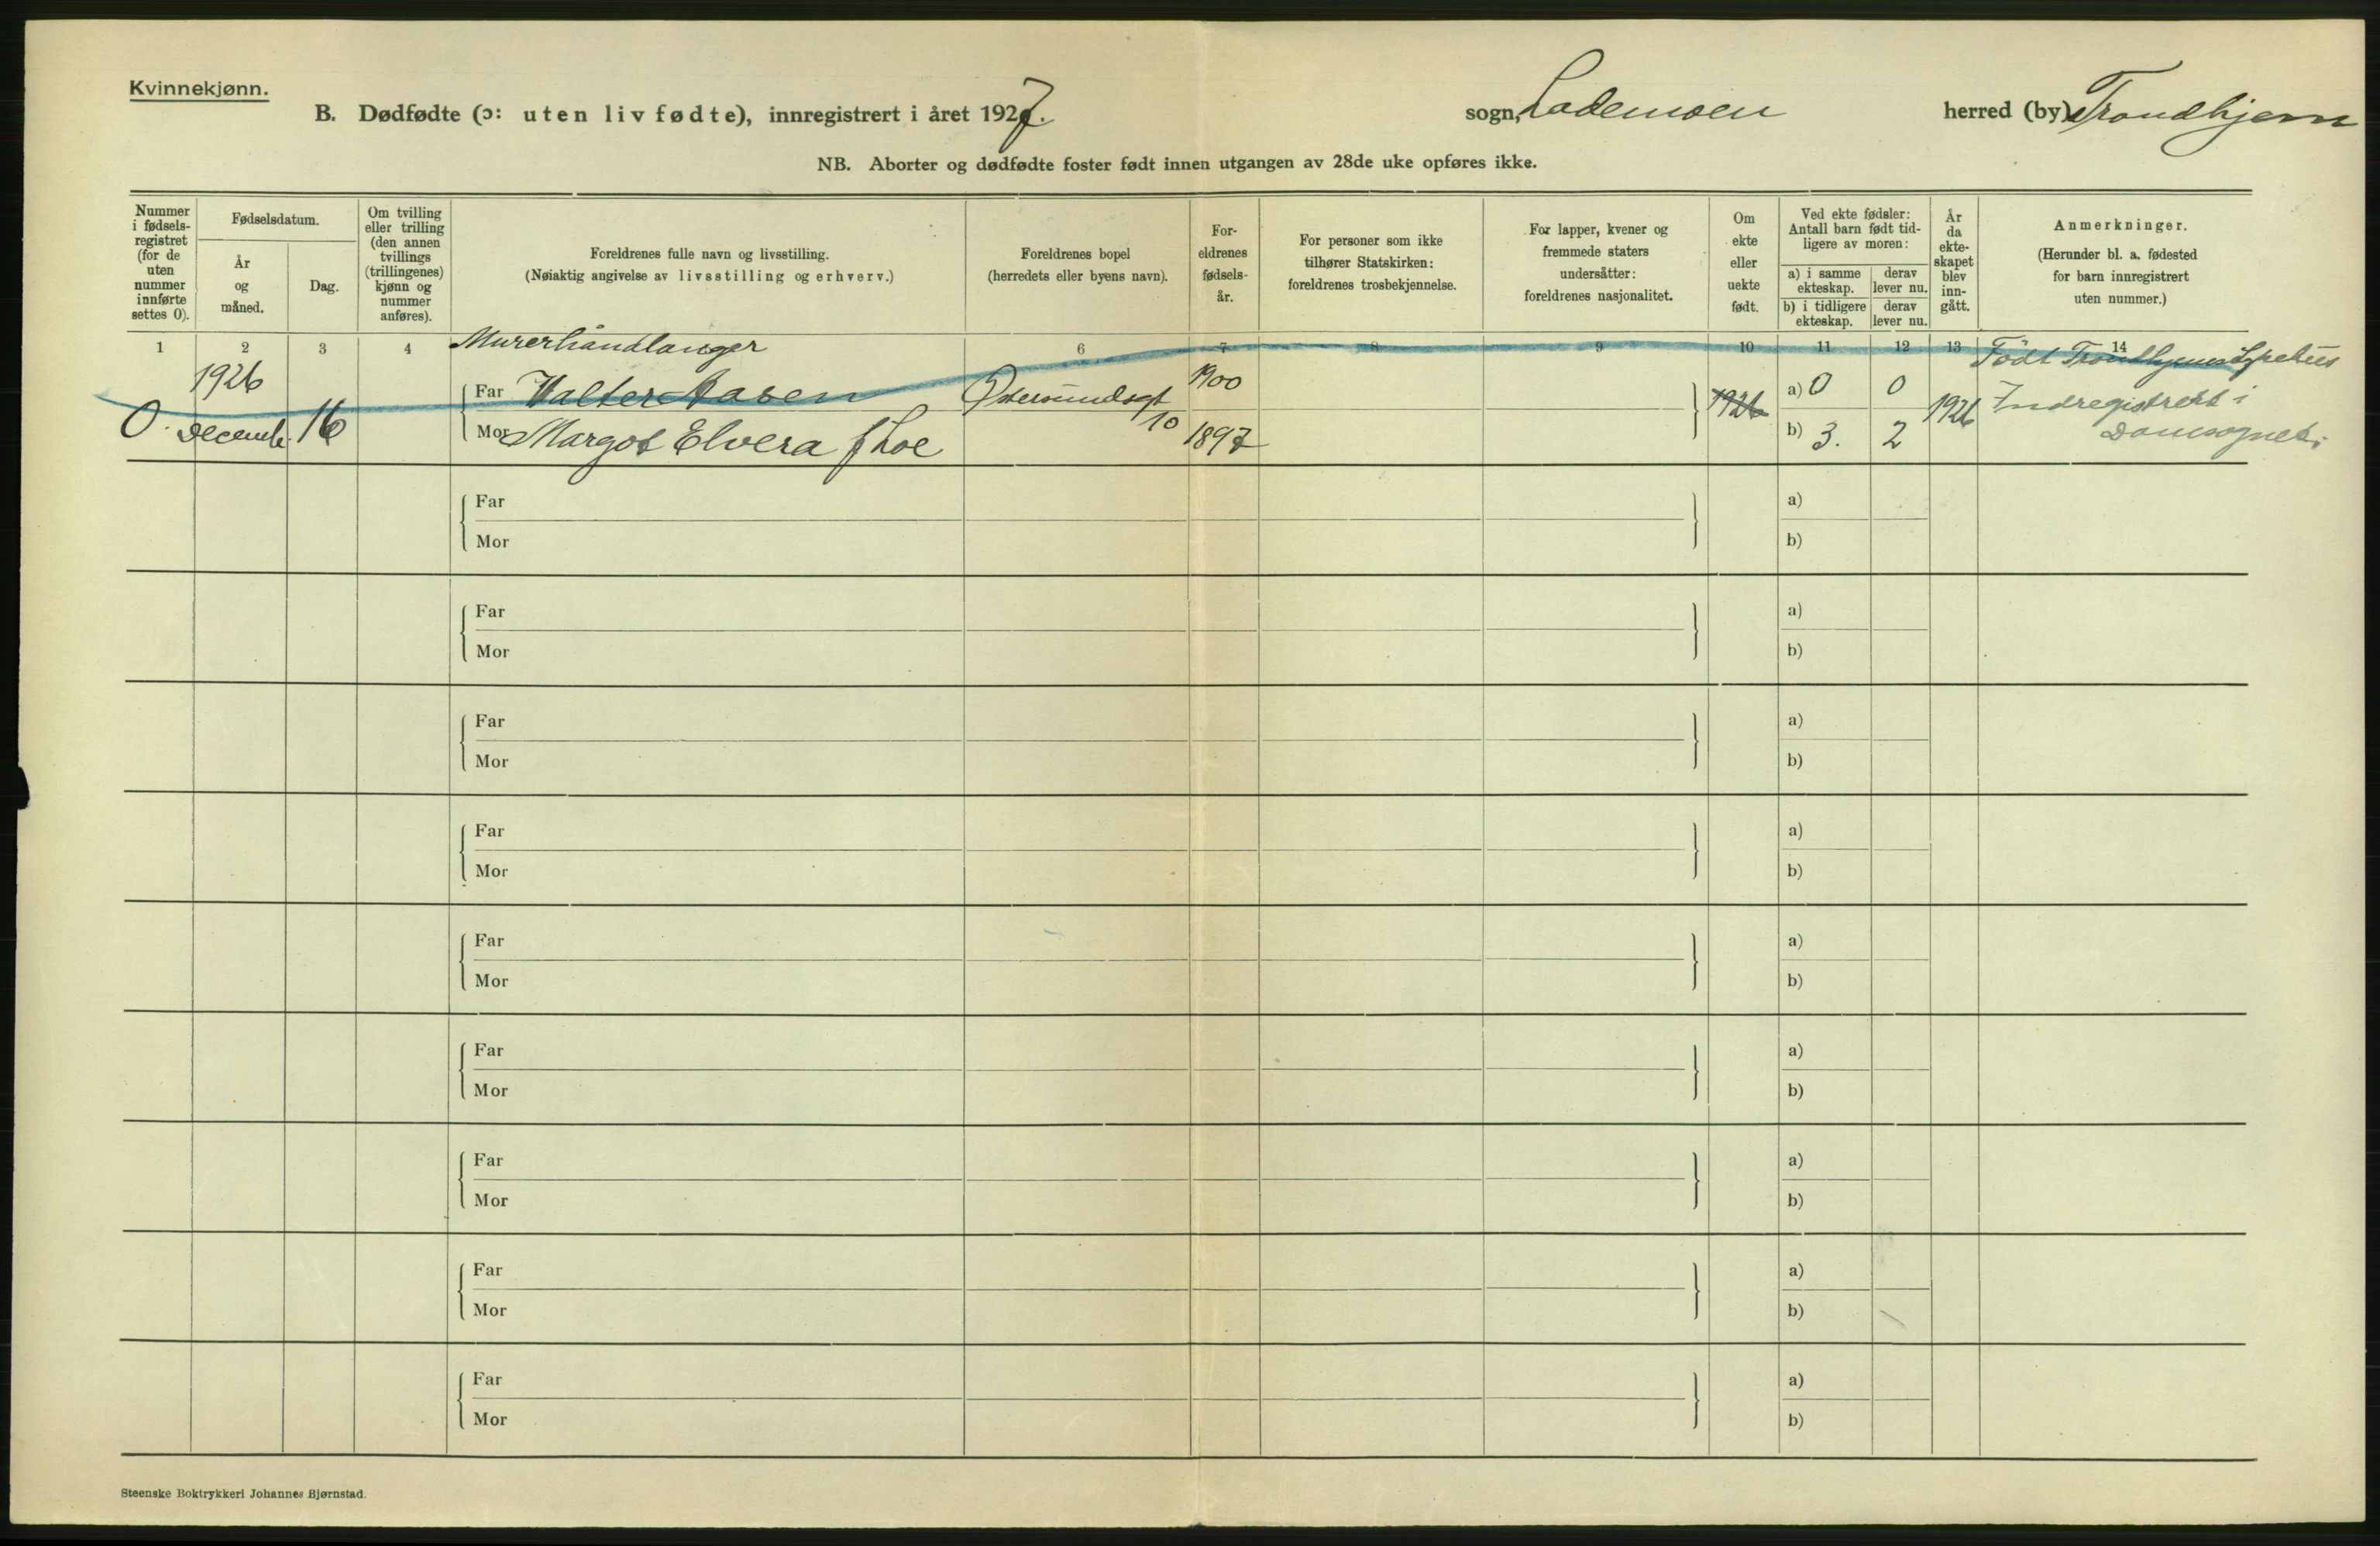 Kvinnekjønn.
B. Dødfødte (ɔ: uten liv fødte), innregistrert i året 1927. sogn, Lademoen herred (by) Trondhjem
NB. Aborter og dødfødte foster født innen utgangen av 28de uke opføres ikke.
Nummer
i fødsels-
registret
(for de
uten
nummer
innførte
settes 0).
Fødselsdatum.
År
og
måned.
Dag.
Om tvilling
eller trilling
(den annen
tvillings
(trillingenes)
kjønn og
nummer
anføres).
Foreldrenes fulle navn og livsstilling.
(Nøiaktig angivelse av livsstilling og erhverv.)
Foreldrenes bopel
(herredets eller byens navn).
For-
eldrenes
fødsels-
år.
For personer som ikke
tilhører Statskirken:
foreldrenes trosbekjennelse.
For lapper, kvener og
fremmede staters
undersåtter:
foreldrenes nasjonalitet.
Om
ekte
eller
uekte
født.
Ved ekte fødsler:
Antall barn født tid-
ligere av moren:
a) i samme
ekteskap.
derav
lever nu.
b) i tidligere
ekteskap.
derav
lever nu.
År
da
ekte-
skapet
blev
inn-
gått.
Anmerkninger.
(Herunder bl. a. fødested
for barn innregistrert
uten nummer.)
1 2 3 4 6 7 8 9 10 11 12 13 14
Murerhåndlanger
Født Trondhjems Sykehus
1926
Far Walter Aasen Østersundsgt 1900 a) 0 0
10
1926 1926 Indregistrert i
0. December 16 Mor Margot Elvera f Loe 1897 b) 3. 2 Domsognet.
Far a)
Mor b)
Far a)
Mor b)
Far a)
Mor b)
Far a)
Mor b)
Far a)
Mor b)
Far a)
Mor b)
Far a)
Mor b)
Far a)
Mor b)
Far a)
Mor b)
Steenske Boktrykkeri Johannes Bjørnstad.